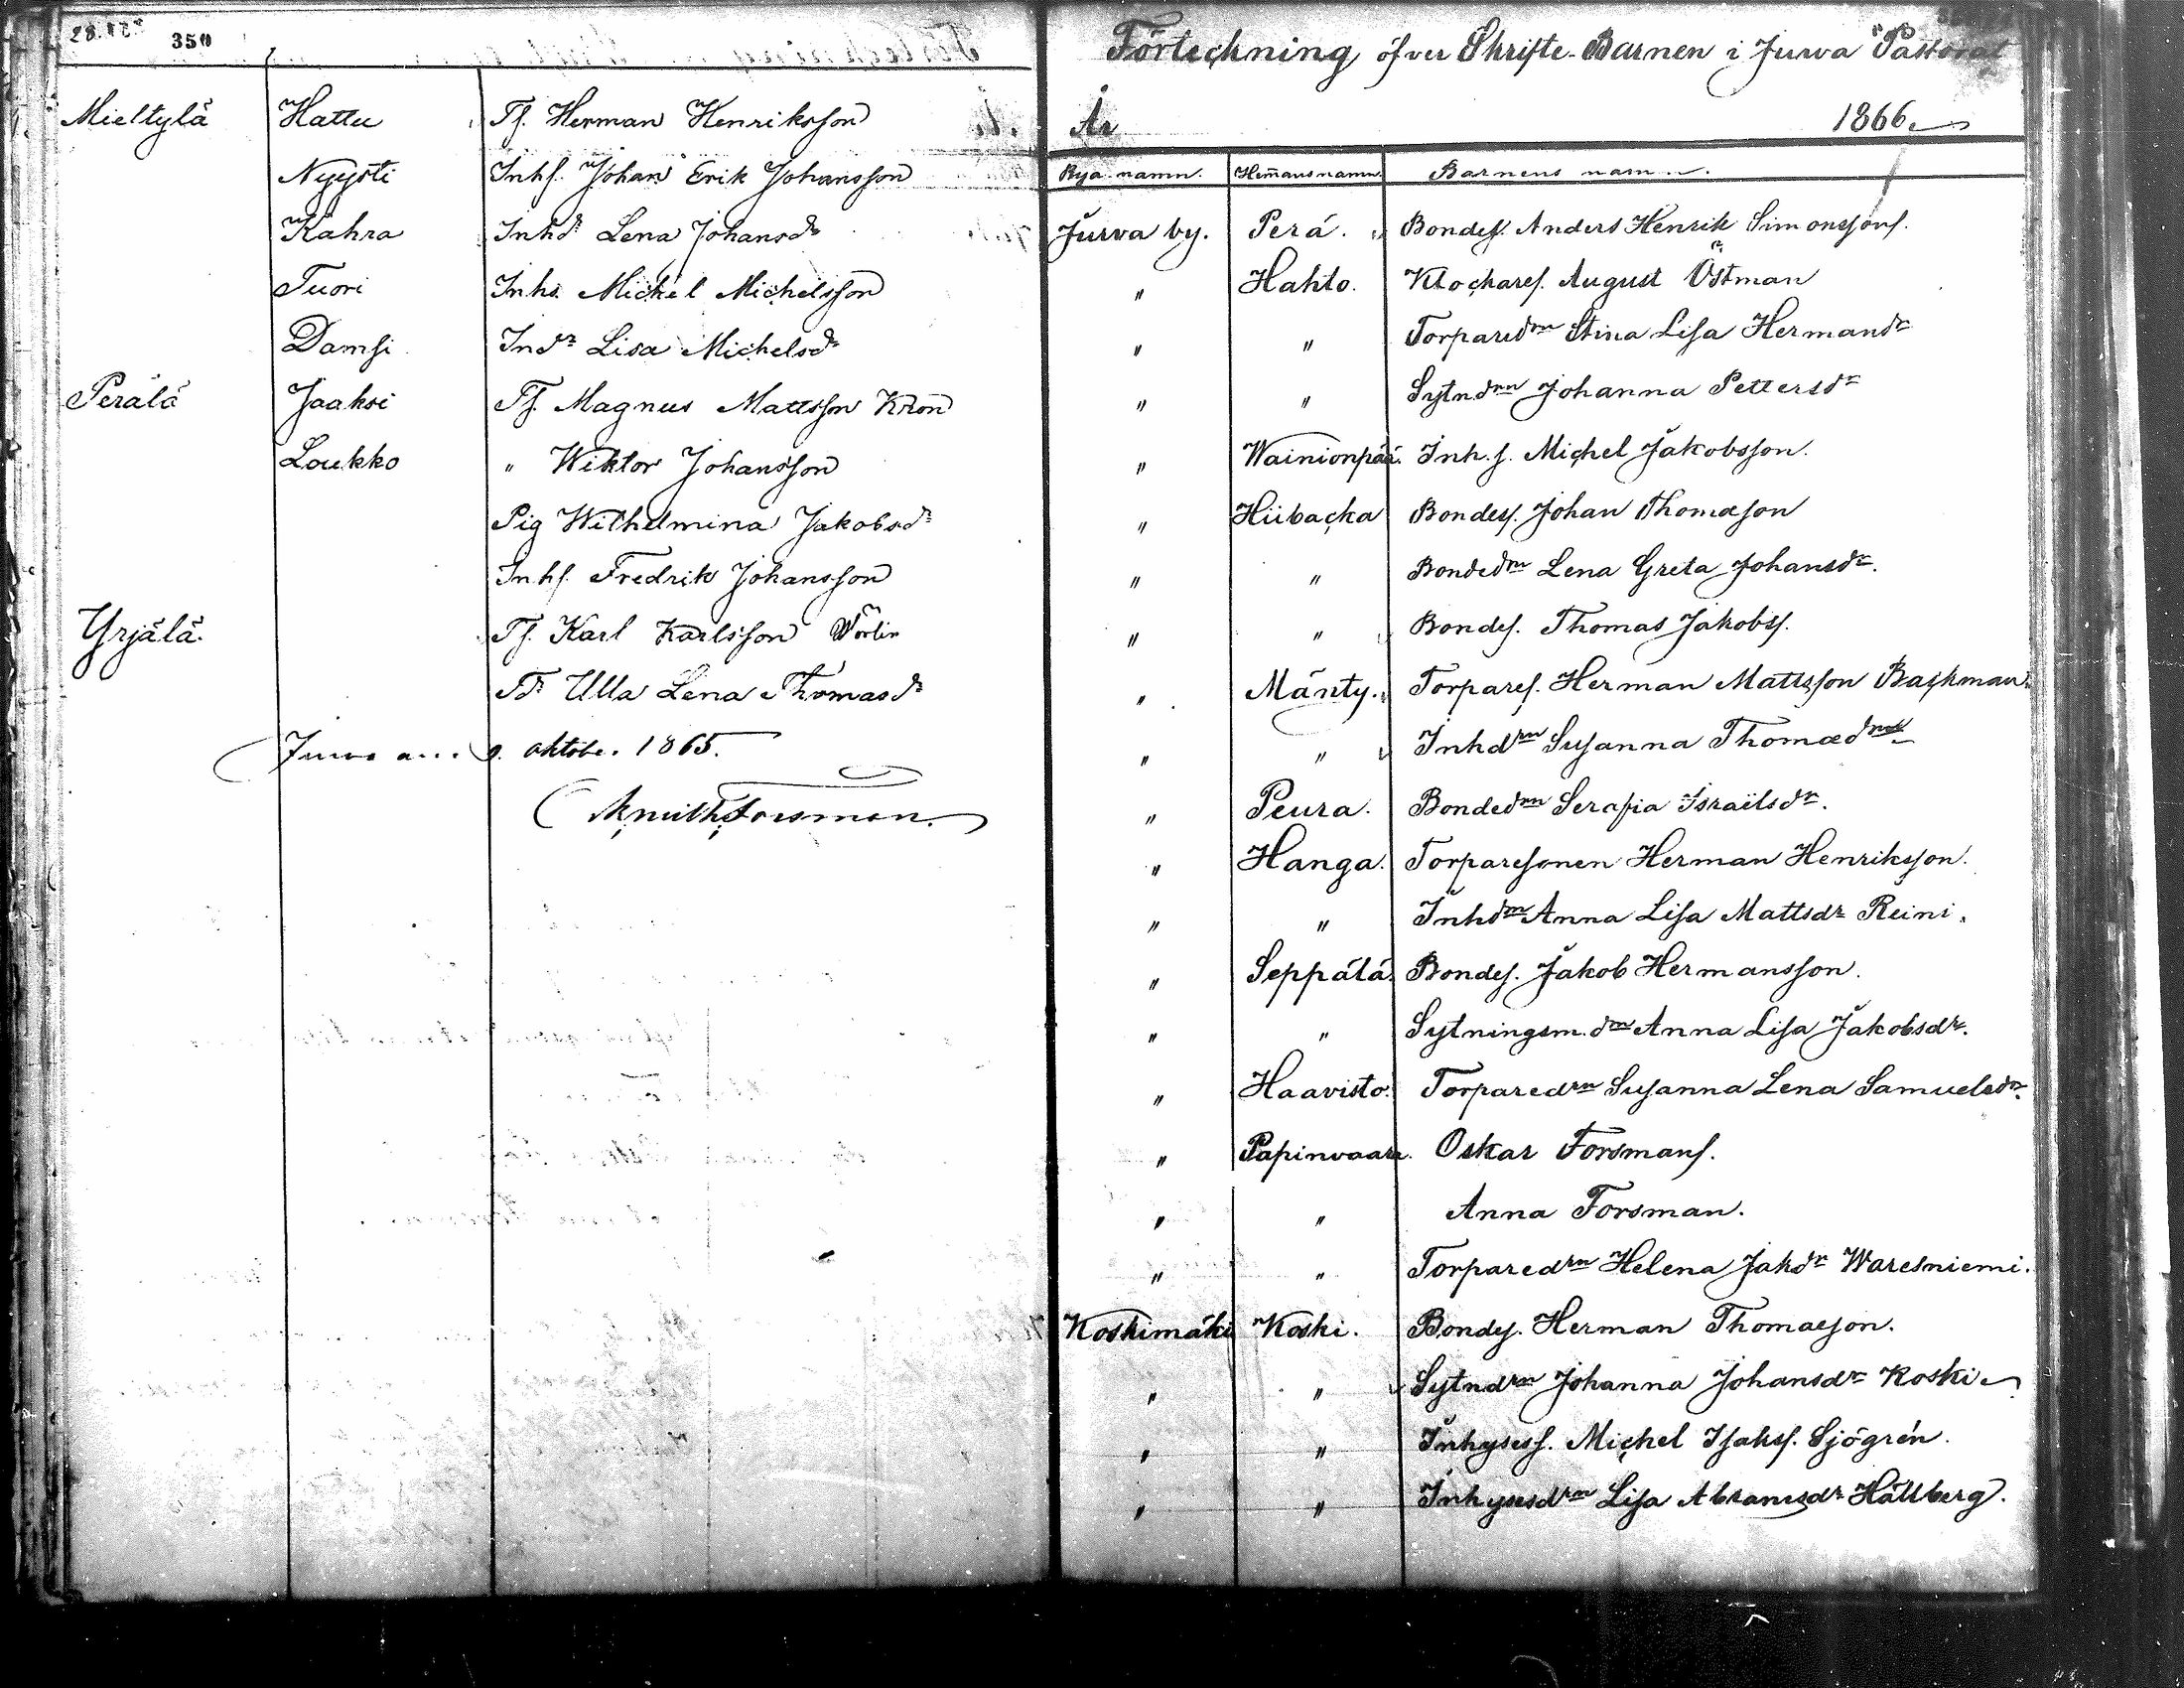 350
Mieltylä Hattu Tf. Herman Henriksson
Nyysti Inhs. Johan Erik Johansson
Kahra Inhdr Lena Johansdr
Tuori Inhs. Michel Michelsson
Damsi Indr Lisa Michelsdr
Perälä Jaaksi Tf. Magnus Mattsson Krön
Loukko " Wiktor Johansson
Pig Wilhelmina Jakobsdr
Inhs. Fredrik Johansson
Yrjälä. Tf. Karl Karlsson Worlin
Tdr Ulla Lena Thomasdr
Jurva 9. oktobe. 1865.
Knuth Forsman.
Förteckning öfver Skrifte-Barnen i Jurva Pastorat
År 1866
Bya namn. Hemansnamn. Barnens namn.
Jurva by. Perä. Bondes. Anders Henrik Simonssons.
" Hahto. Klockares. August Östman
" " Torparedrn Stina Lisa Hermansdr
" " Sytndrn Johanna Pettersdr
" Wainionpää. Inh.s. Michel Jakobsson.
" Hiibacka Bondes. Johan Thomasson
" " Bondedrn Lena Greta Johansdr.
" " Bondes. Thomas Jakobs.
" Mänty. Torpares. Herman Mattsson Backman.
" " Inhdrn Susanna Thomædr
" Peura. Bondedrn Serafia Israïlsdr.
" Hanga. Torparesonen Herman Henriksson.
" " Inhdrn Anna Lisa Mattsdr Reini.
" Seppälä. Bondes. Jakob Hermansson.
" " Sytningsm.drn Anna Lisa Jakobsdr.
" Haavisto. Torparedrn Susanna Lena Samuelsdr.
" Papinvaara. Oskar Forsmans.
" " Anna Forsman.
" " Torparedrn Helena Jakdr Waresniemi.
Koskimäki Koski. Bondes. Herman Thomaeson.
" " Sytndrn Johanna Johansdr Koski
" " Inhysess. Michel Isaks. Sjögrén.
" " Inhysesdrn Lisa Abramsdr Hällberg.